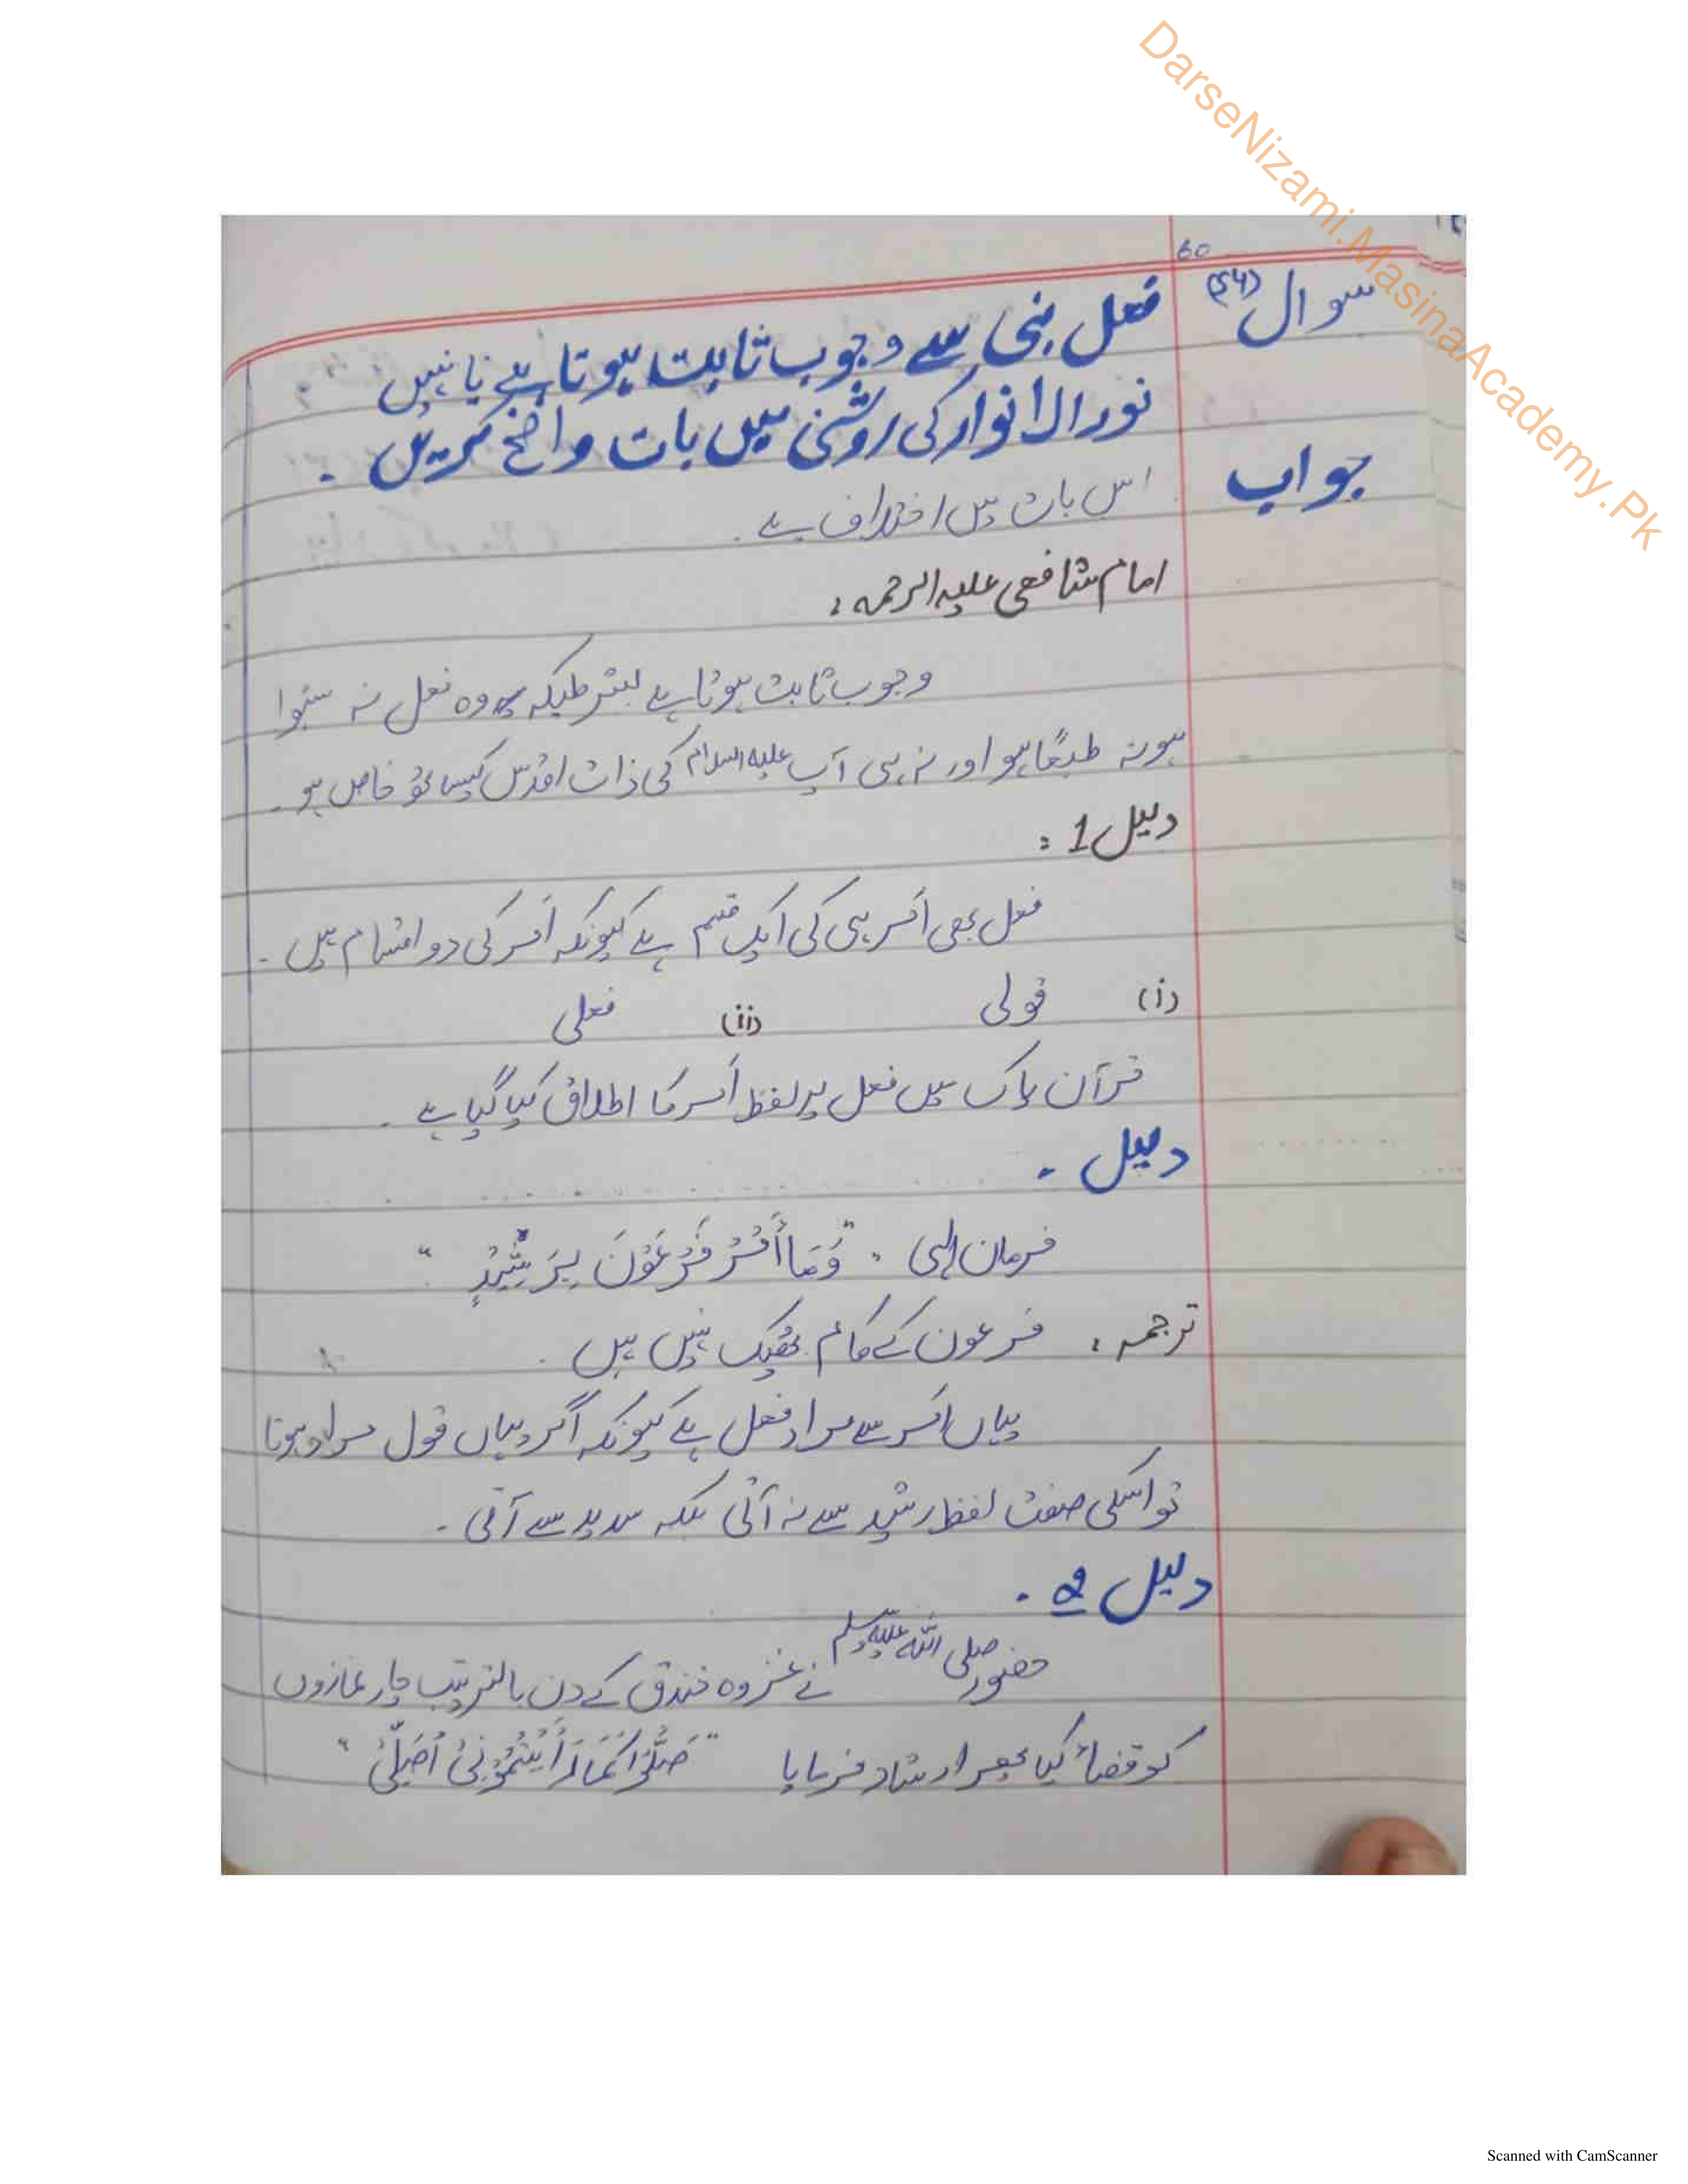 DarseNizami.MasinaAcademy.Pk
60
سوال
فعل نبی سے وجوب ثابت ہوتا ہے یا نہیں
نورالانوار کی روشنی میں بات واضح کریں ۔
جواب
اس بات میں اختلاف ہے ۔
امام شافعی علیہ الرحمہ :
وجوب ثابت ہوتا ہے بشرطیکہ وہ فعل نہ سہوا
ہو نہ طبعًا ہو اور نہ ہی آپ علیہ السلام کی ذات اقدس کیساتھ خاص ہو ۔
دلیل 1 :
فعل بھی اَمر ہی کی ایک قسم ہے کیونکہ اَمر کی دو اقسام ہیں ۔
(i) قولی (ii) فعلی
قرآن پاک میں فعل پر لفظ اَمر کا اطلاق کیا گیا ہے ۔
دلیل ۔
فرمان الٰہی : " وَمَا أَمْرُ فِرْعَوْنَ بِرَشِيْدٍ "
ترجمہ : فرعون کے کام ٹھیک نہیں ہیں ۔
یہاں اَمر سے مراد فعل ہے کیونکہ اگر یہاں قول مراد ہوتا
تو اسکی صفت لفظ رشید سے نہ آتی بلکہ سدید سے آتی ۔
دلیل
حضور صلی اللہ علیہ وسلم نے غزوہ خندق کے دن بالترتیب چار نمازوں
کو قضاء کیا پھر ارشاد فرمایا " صَلُّوْا كَمَا رَأَيْتُمُوْنِيْ أُصَلِّيْ "
Scanned with CamScanner